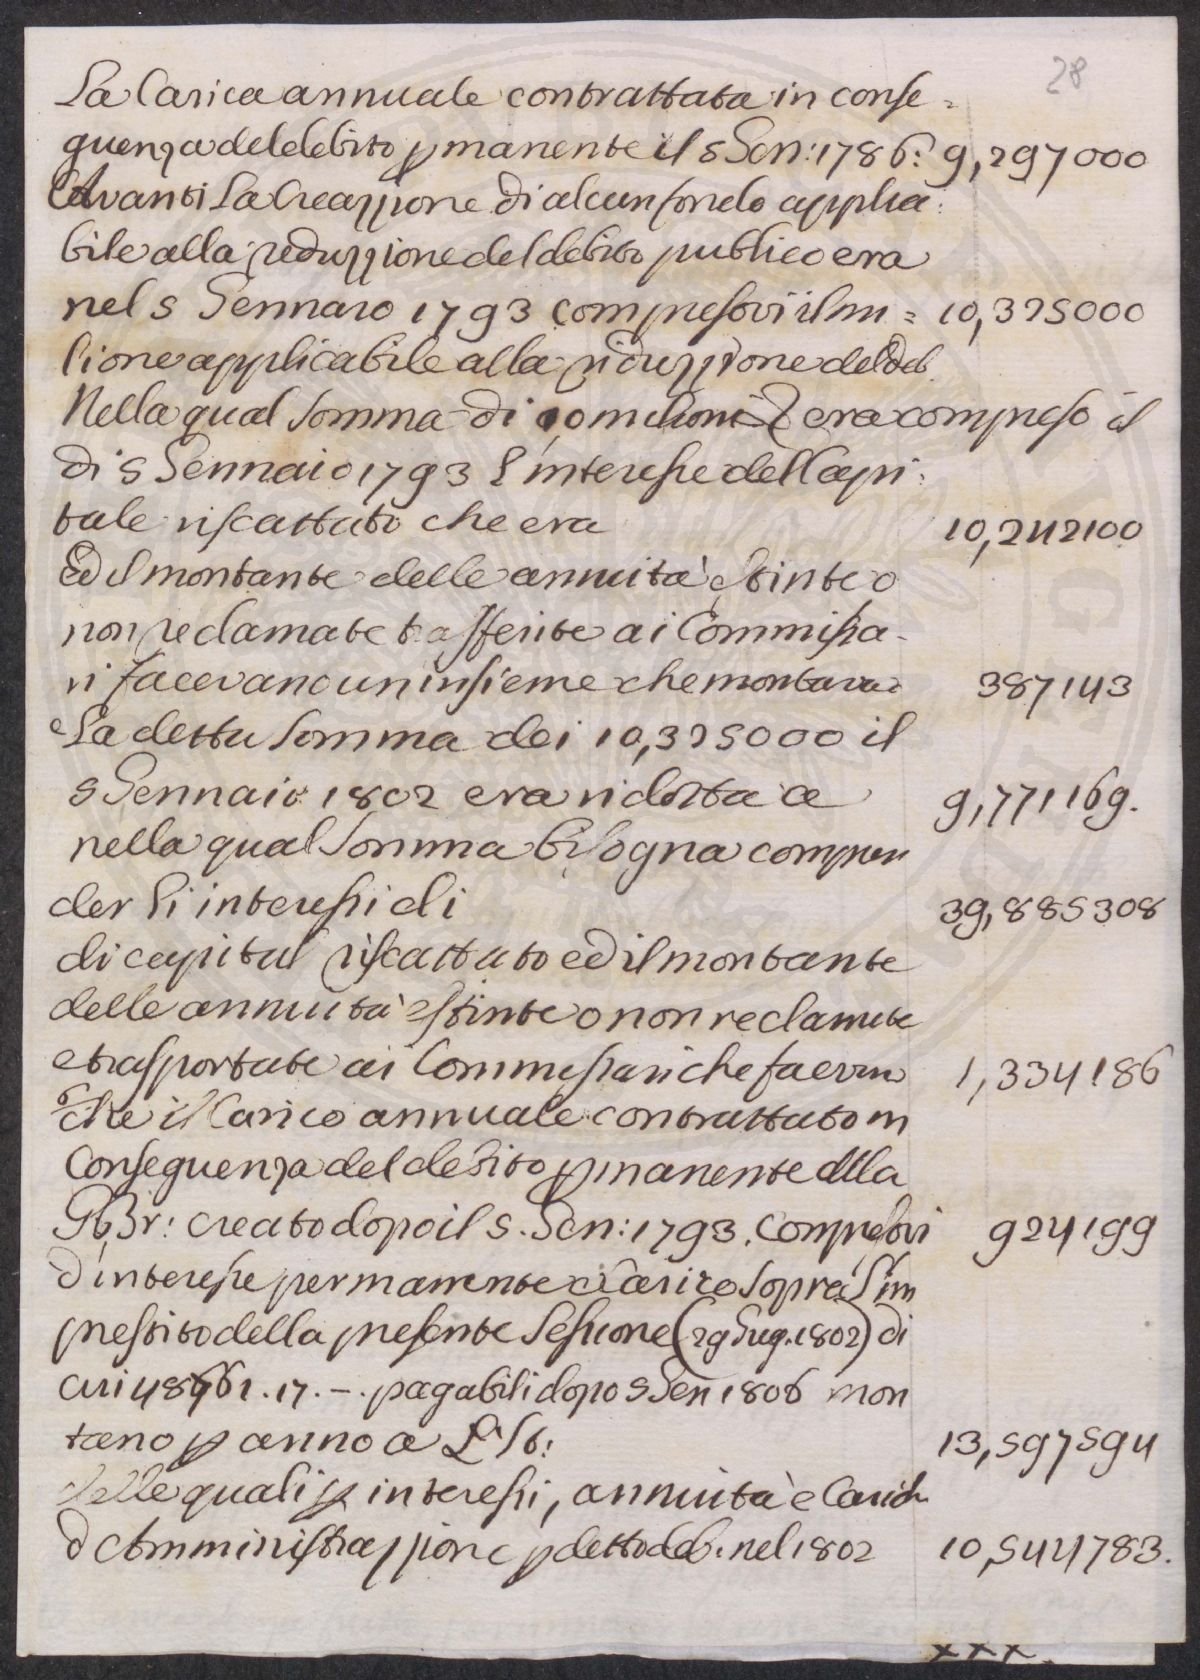 28
La Carica annuale contrattata in conse=
guenza del debito pmanente il 5 Gen: 1786: 9,297000
Avanti La Creazzione di alcun fondo applica:
bile alla reduzzione del debito publico era
nel 5 Gennaro 1793 compresovi il mi= 10,325000
lione applicabile alla riduzzione del deb
Nella qual somma di 10 milioni era compreso il
di 5 Gennaio 1793 l'interesse del Capi:
tale riscattato che era 10,242100
Ed il montante delle annuita' estinte o
non reclamate trasferite ai Commissa-
ri facevano un insieme che montava 387143
La detta somma dei 10,325000 il
5 Gennaio 1802 era ridotta a 9,771169.
nella qual somma bisogna compren
der li interessi di 39,885308
di capital riscattato ed il montante
delle annuita' estinte o non reclamate
e trasportate ai Commessari che facevan 1,334186
Che il Carico annuale contrattato in
Conseguenza del debito pmanente della
G. Br: creato dopo il 5. Gen: 1793. compresovi 924199
d'interesse permanente a Carico sopra l'im
prestito della presente Sessione (29 Giug. 1802) di
cui 17.-. pagabili dopo 5 Gen 1806 mon
tano p anno a L. St: 13,597594
delle quali p interessi, annuita' e Carich
d'Amministrazzione p detto deb. nel 1802 10,544783.